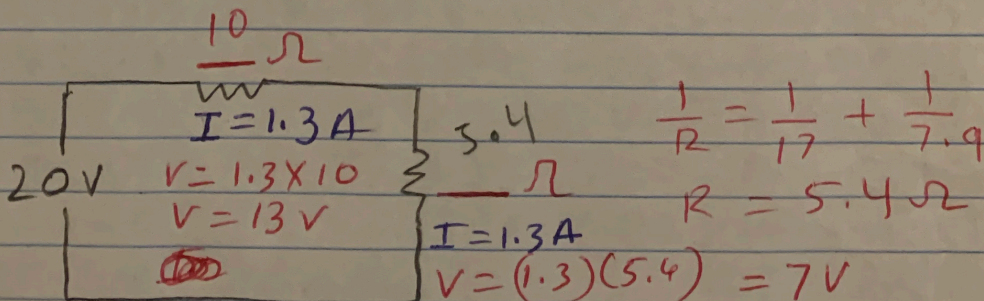 10 Ω
I = 1.3 A
20V
V = 1.3 X 10
V = 13 V
5.4 Ω
I = 1.3 A
V = (1.3)(5.4) = 7V
1/R = 1/17 + 1/7.9
R = 5.4 Ω